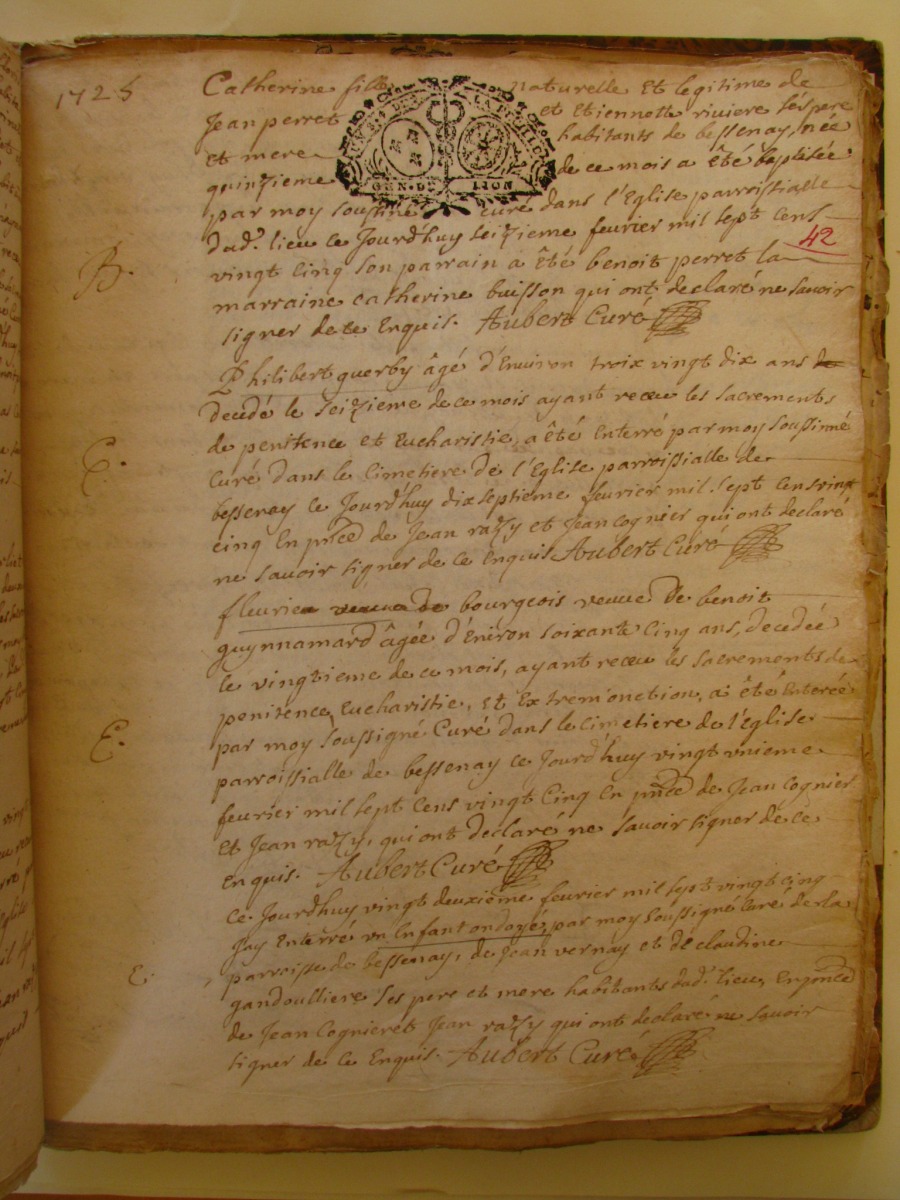 1725
Catherine fille naturelle et legitime de
Jean perret et Etiennette riviere ses pere
et mere habitants de bessenay, née
quinzieme de ce mois a êté baptisée
par moy soussiné curé dans l'Eglise parroissialle
dud.t lieu ce Jourd'huy seizieme fevrier mil sept cens
42
B.
vingt cinq son parrain a êté benoit perret la
marraine catherine buisson qui ont declaré ne savoir
signer de ce Enquis. Aubert Curé
Philibert guerby âgé d'Environ troix vingt dix ans
decedé le seizieme de ce mois ayant receu les sacrements
de penitence et Eucharistie, a êté Enterré par moy soussinné
E.
Curé dans le Cimetiere de l'Eglise parroissialle de
bessenay ce Jourd'huy dixseptieme fevrier mil sept cens vingt
cinq En pñce de Jean razy et Jean Cognier qui ont declaré
ne savoir signer de ce Enquis Aubert Curé
fleurie veuve de bourgeois veuve de benoit
guynnamard âgée d'Eniron soixante Cinq ans, decedée
le vingtieme de ce mois, ayant receu les sacrements de
penitence, Eucharistie, et Extrem'onction, a êté Enterée
E.
par moy soussigné Curé dans le cimetiere de l'église
parroissialle de bessenay ce Jourd'huy vingt vnieme
fevrier mil sept cens vingt Cinq En pñce de Jean Cognier
et Jean razy, qui ont declaré ne savoir signer de ce
Enquis. Aubert Curé
Ce Jourdhuy vingt deuxième fevrier mil sept vingt cinq
Jay Enterré vn Enfant ondoyé, par moy soussigné Curé de la
E.
parroisse de bessenay, de Jean vernay et de claudine
gandoulliere ses pere et mere habitants dud.t lieu, En pñce
de Jean Cognier et Jean razy qui ont declaré ne savoir
signer de ce Enquis. Aubert Curé